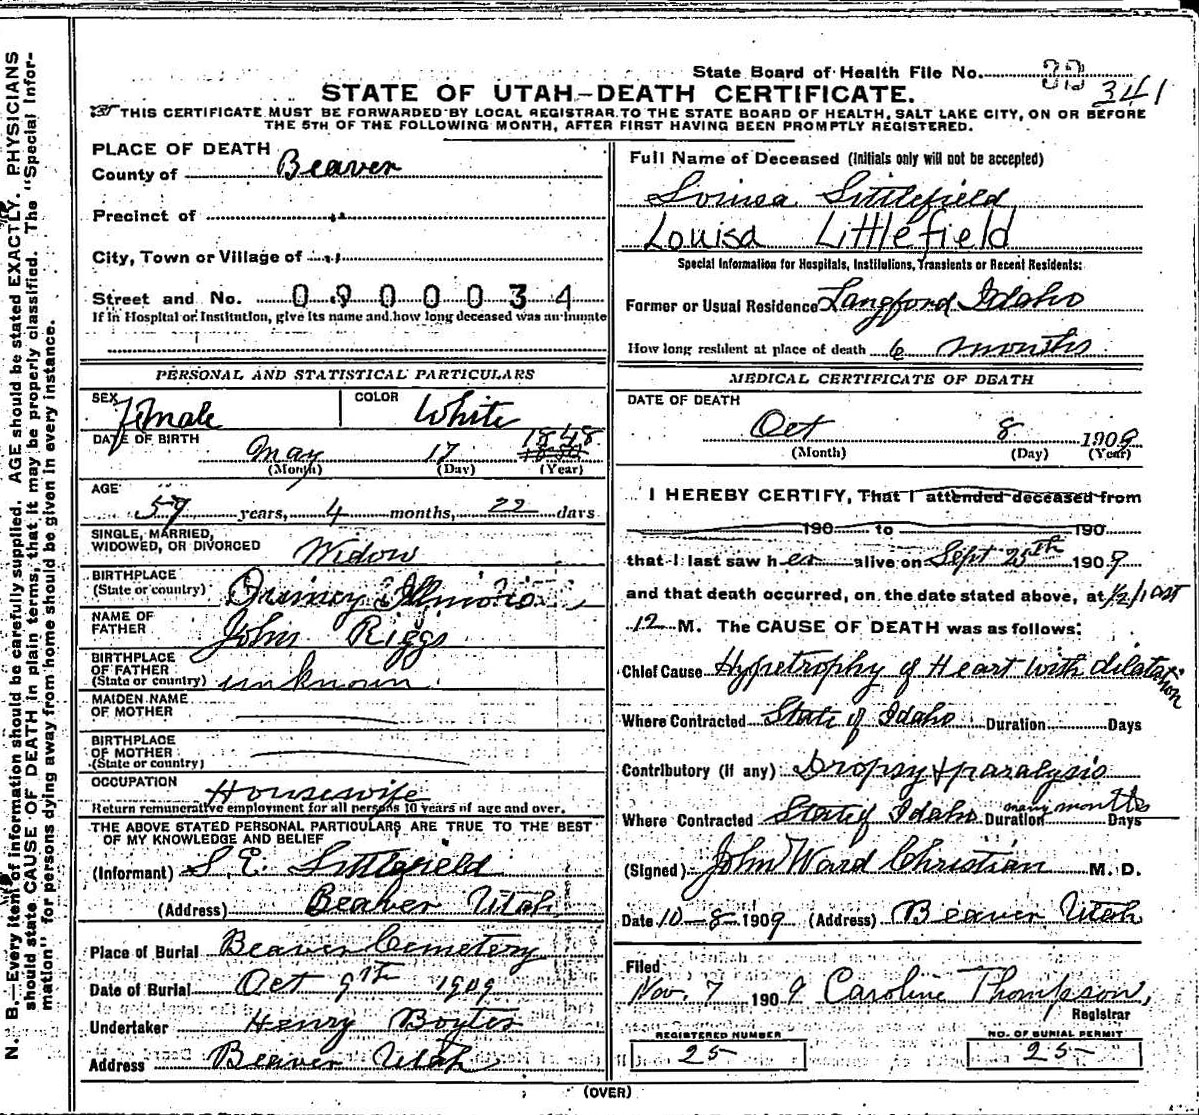 State Board of Health File No. 341
STATE OF UTAH—DEATH CERTIFICATE.
THIS CERTIFICATE MUST BE FORWARDED BY LOCAL REGISTRAR TO THE STATE BOARD OF HEALTH, SALT LAKE CITY, ON OR BEFORE
THE 5TH OF THE FOLLOWING MONTH, AFTER FIRST HAVING BEEN PROMPTLY REGISTERED.
N. B.—Every item of information should be carefully supplied. AGE should be stated EXACTLY. PHYSICIANS
should state CAUSE OF DEATH in plain terms, that it may be properly classified. The "Special Infor-
mation" for persons dying away from home should be given in every instance.
PLACE OF DEATH
County of Beaver
Precinct of "
City, Town or Village of "
Street and No. 0900034
If in Hospital or Institution, give its name and how long deceased was an inmate
PERSONAL AND STATISTICAL PARTICULARS
SEX Female COLOR White
DATE OF BIRTH May 17 1848
(Month) (Day) (Year)
AGE
59 years, 4 months, 22 days
SINGLE, MARRIED,
WIDOWED, OR DIVORCED Widow
BIRTHPLACE
(State or country) Quincy Illinois
NAME OF
FATHER John Riggs
BIRTHPLACE
OF FATHER
(State or country) unknown
MAIDEN NAME
OF MOTHER
BIRTHPLACE
OF MOTHER
(State or country)
OCCUPATION Housewife
Return remunerative employment for all persons 10 years of age and over.
THE ABOVE STATED PERSONAL PARTICULARS ARE TRUE TO THE BEST
OF MY KNOWLEDGE AND BELIEF
(Informant) S. E. Littlefield
(Address) Beaver Utah
Place of Burial Beaver Cemetery
Date of Burial Oct 9th 1909
Undertaker Henry Boyter
Address Beaver Utah
Full Name of Deceased (Initials only will not be accepted)
Louisa Littlefield
Louisa Littlefield
Special Information for Hospitals, Institutions, Transients or Recent Residents:
Former or Usual Residence Langford Idaho
How long resident at place of death 6 months
MEDICAL CERTIFICATE OF DEATH
DATE OF DEATH
Oct 8 1909
(Month) (Day) (Year)
I HEREBY CERTIFY, That I attended deceased from
190 to 190
that I last saw her alive on Sept 25th 1909
and that death occurred, on the date stated above, at 1/2 past
12 M. The CAUSE OF DEATH was as follows:
Chief Cause Hypetrophy of Heart with dilatation
Where Contracted State of Idaho Duration Days
Contributory (if any) Dropsy & paralysis
Where Contracted State of Idaho Duration many months Days
(Signed) John Ward Christian M. D.
Date 10-8-1909 (Address) Beaver Utah
Filed
Nov. 7 1909 Caroline Thompson,
Registrar
REGISTERED NUMBER NO. OF BURIAL PERMIT
25 25
(OVER)